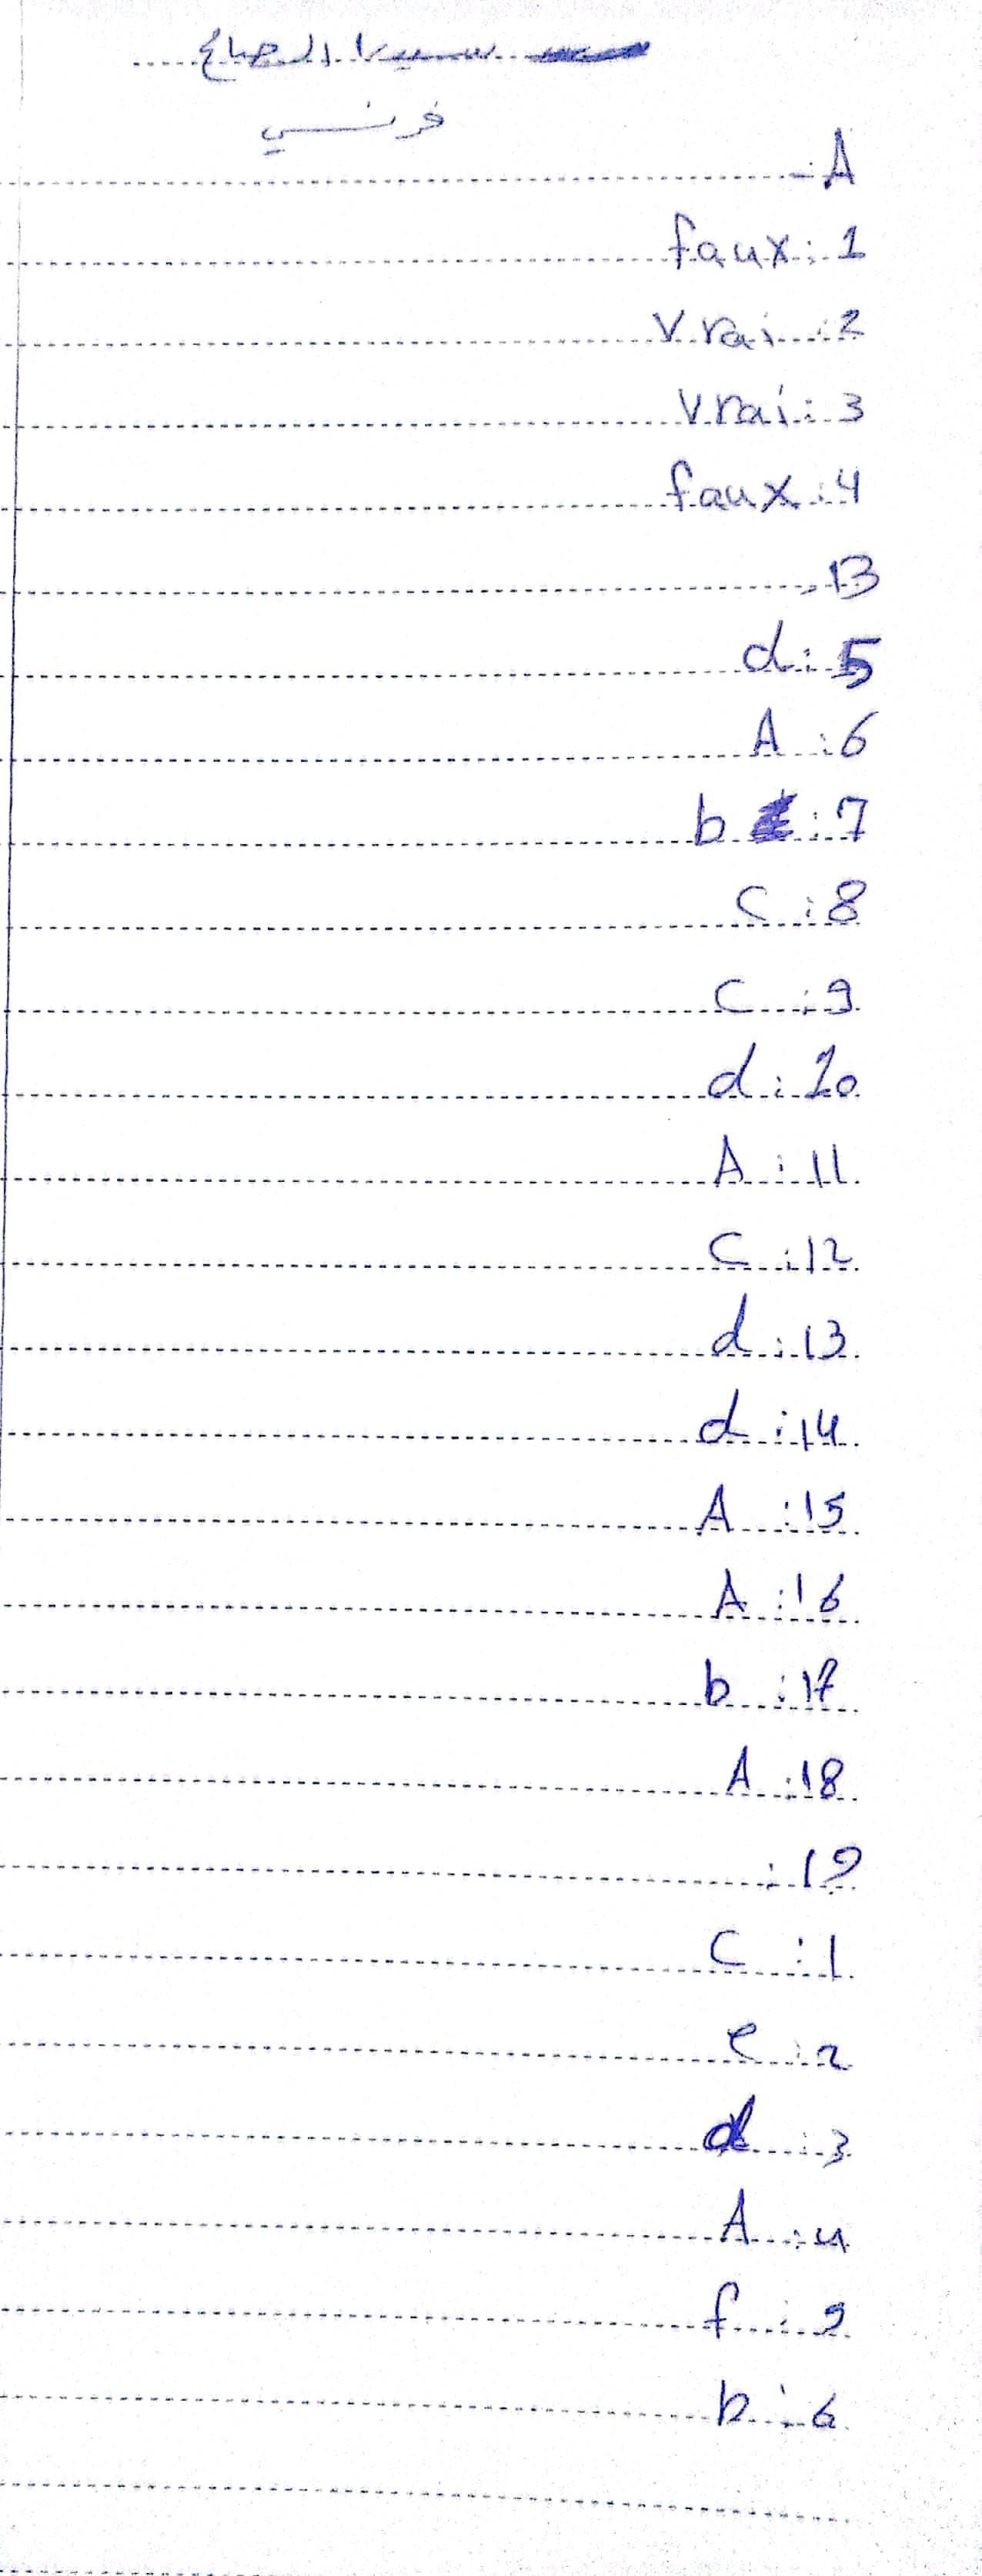 سيدرا الصباغ
فرنسي
A -
1: faux
2: vrai
3: vrai
4: faux
B -
5: d
6: A
7: b
8: c
9: c
10: d
11: A
12: c
13: d
14: d
15: A
16: A
17: b
18: A
19:
1: c
2: e
3: d
4: A
5: f
6: b